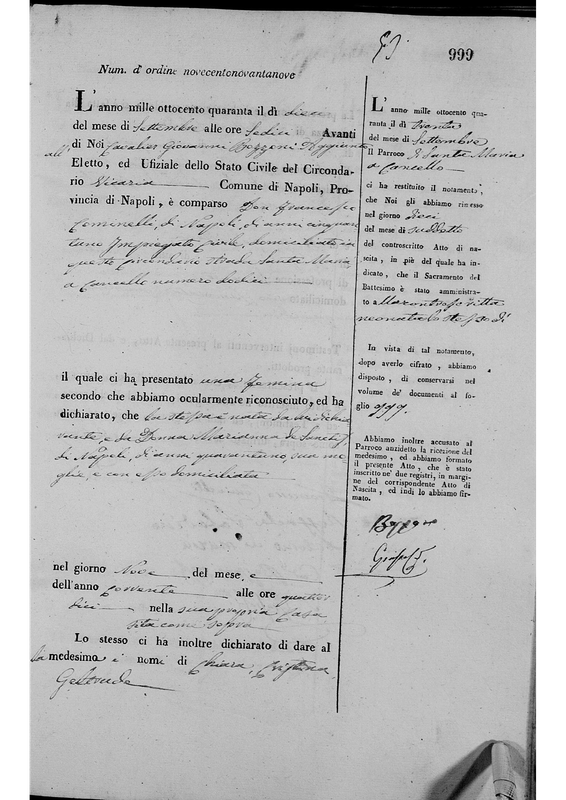 999
Num. d'ordine novecentonovantanove
L'anno mille ottocento quaranta il dì dieci
del mese di Settembre alle ore Sedici Avanti
di Noi Cavalier Giovanni Aggiunto
all' Eletto, ed Ufiziale dello Stato Civile del Circonda-
rio Vicaria Comune di Napoli, Pro-
vincia di Napoli, è comparso Don Francesco
Cominelli, di Napoli, di anni cinquan
tuno Impiegato Civile, domiciliato in
questo Circondario strada Santa Maria
a Cancello numero dodici
il quale ci ha presentato una femina
secondo che abbiamo ocularmente riconosciuto, ed ha
dichiarato, che la stessa è nata da se dichia
rante, e da Donna Marianna de Sanctis
di Napoli, di anni quarantuno, sua mo
glie, e con esso domiciliata
nel giorno Nove del mese e
dell'anno Corrente alle ore quattor
dici nella sua propria casa
sita come sopra
Lo stesso ci ha inoltre dichiarato di dare al
la medesima i nomi di Chiara, Cristina
Geltrude
L'anno mille ottocento qua-
ranta il dì trenta
del mese di Settembre
Il Parroco di Santa Maria
a Cancello
ci ha restituito il notamento,
che Noi gli abbiamo rimesso
nel giorno Dieci
del mese di suddetto
del controscritto Atto di na-
scita, in piè del quale ha in-
dicato, che il Sacramento del
Battesimo è stato amministra-
to alla controscritta
neonata lo stesso dì
In vista di tal notamento,
dopo averlo cifrato, abbiamo
disposto, di conservarsi nel
volume de' documenti al fo-
glio 999.
Abbiamo inoltre accusato al
Parroco anzidetto la ricezione del
medesimo, ed abbiamo formato
il presente Atto, che è stato
inscritto ne' due registri, in margi-
ne del corrispondente Atto di
Nascita, ed indi lo abbiamo fir-
mato.